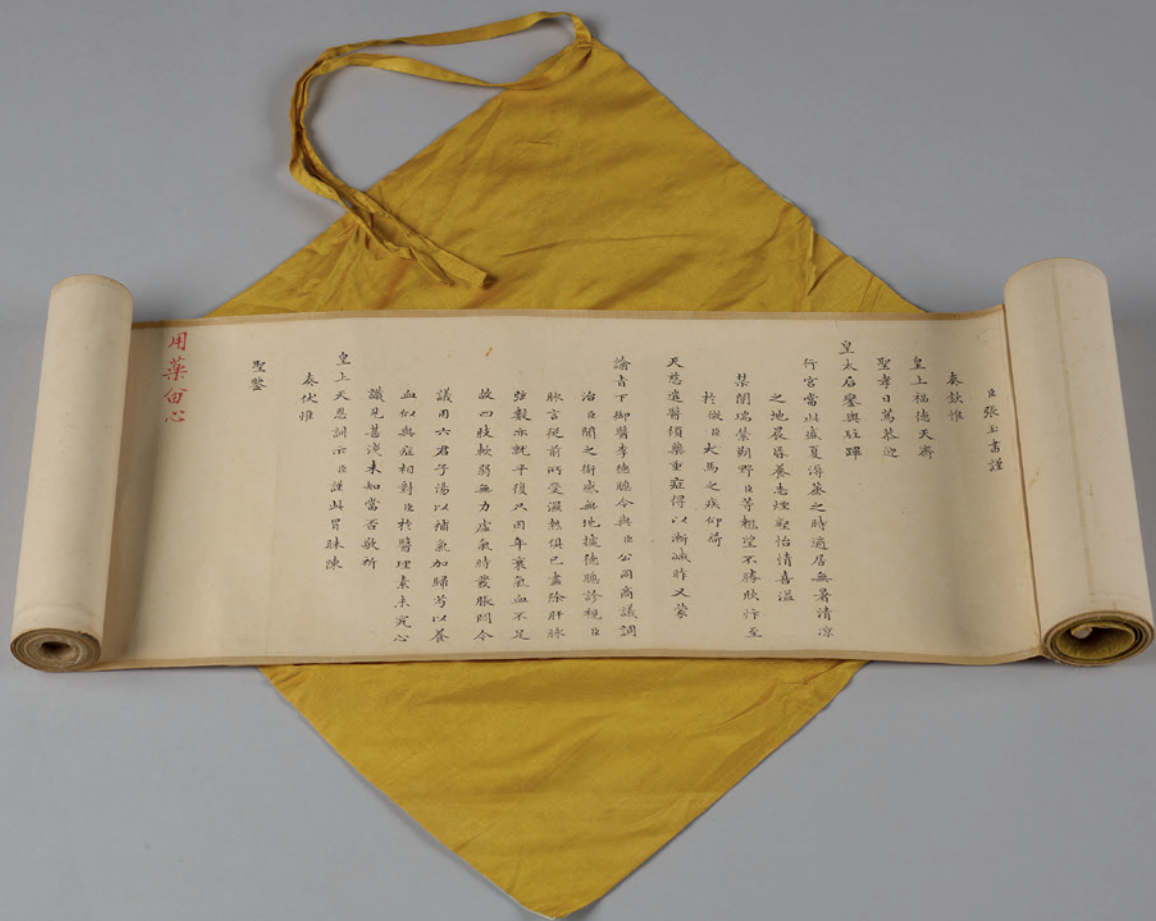 臣張玉書謹
奏欽惟
皇上福德天齊
聖孝日篤恭迎
皇太后鑾輿駐蹕
行宮當此盛夏溽蒸之時適居無暑清凉
之地晨昏養志煙壑怡情喜溢
禁闈瑞縈朔野臣等翹望不勝歡忭至
於微臣犬馬之疾仰荷
天慈遣醫頒藥重症得以漸減昨又蒙
諭旨下御醫李德聰令與臣公同商議調
治臣聞之銜感無地據德聰診視臣
脉言從前所受濕熱俱已盡除肝脉
弦數亦就平復只因年衰氣血不足
故四肢軟弱無力虛氣時發脹悶今
議用六君子湯以補氣加歸芍以養
血似與症相對臣於醫理素未究心
識見甚淺未知當否敬祈
皇上天恩訓示臣謹此冒昧陳
奏伏惟
聖鑒
用藥留心